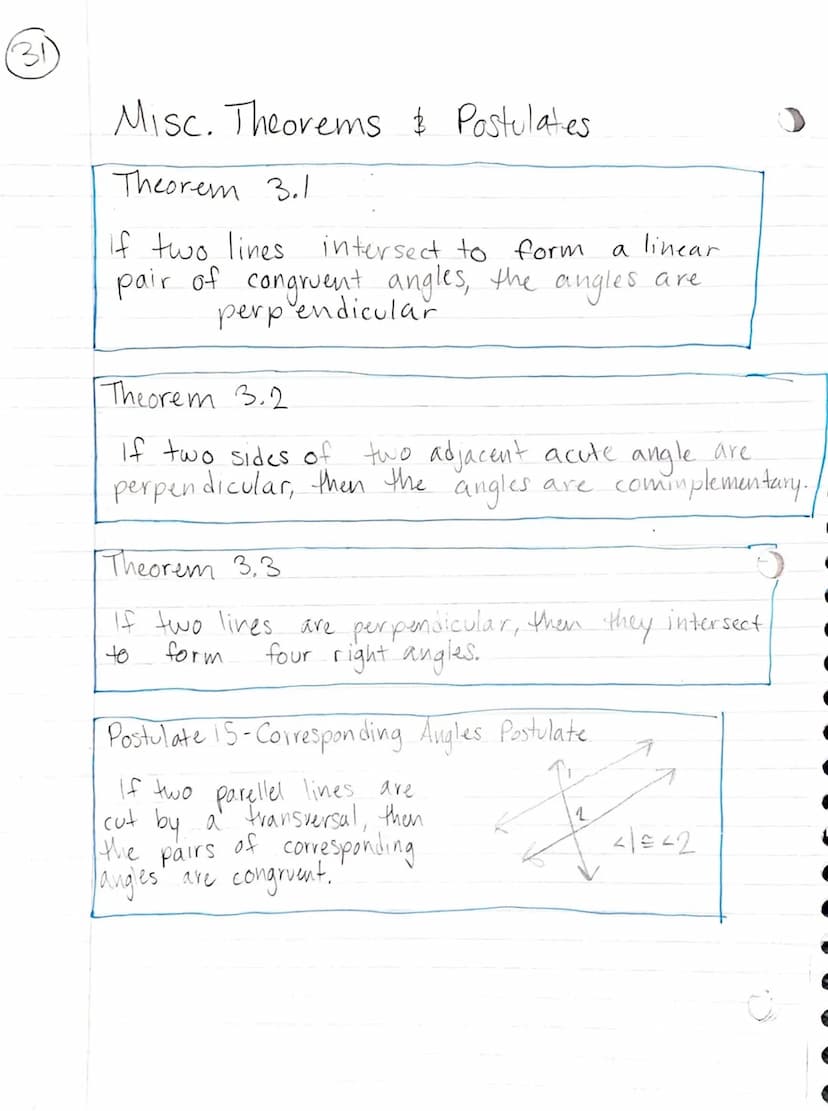 31
Misc. Theorems & Postulates
Theorem 3.1
If two lines intersect to form a linear
pair of congruent angles, the angles are
perpendicular
Theorem 3.2
If two sides of two adjacent acute angle are
perpendicular, then the angles are cominplementary.
Theorem 3.3
If two lines are perpendicular, then they intersect
to form four right angles.
Postulate 15 - Corresponding Angles Postulate
If two parellel lines are
cut by a transversal, then
the pairs of corresponding
angles are congruent.
1
2
<1 ≅ <2